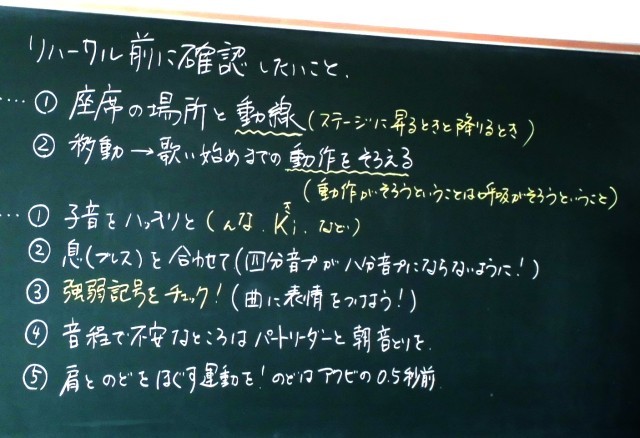 リハーサル前に確認したいこと.
… ① 座席の場所と動線(ステージに昇るときと降りるとき)
② 移動→歌い始めまでの動作をそろえる
(動作がそろうということは呼吸がそろうということ)
… ① 子音をハッキリと(んな. Ki. など)
き
② 息(ブレス)を合わせて(四分音プが八分音プにならないように!)
③ 強弱記号をチェック!(曲に表情をつけよう!)
④ 音程で不安なところはパートリーダーと朝音とりを.
⑤ 肩とのどをほぐす運動を!のどはアクビの0.5秒前.